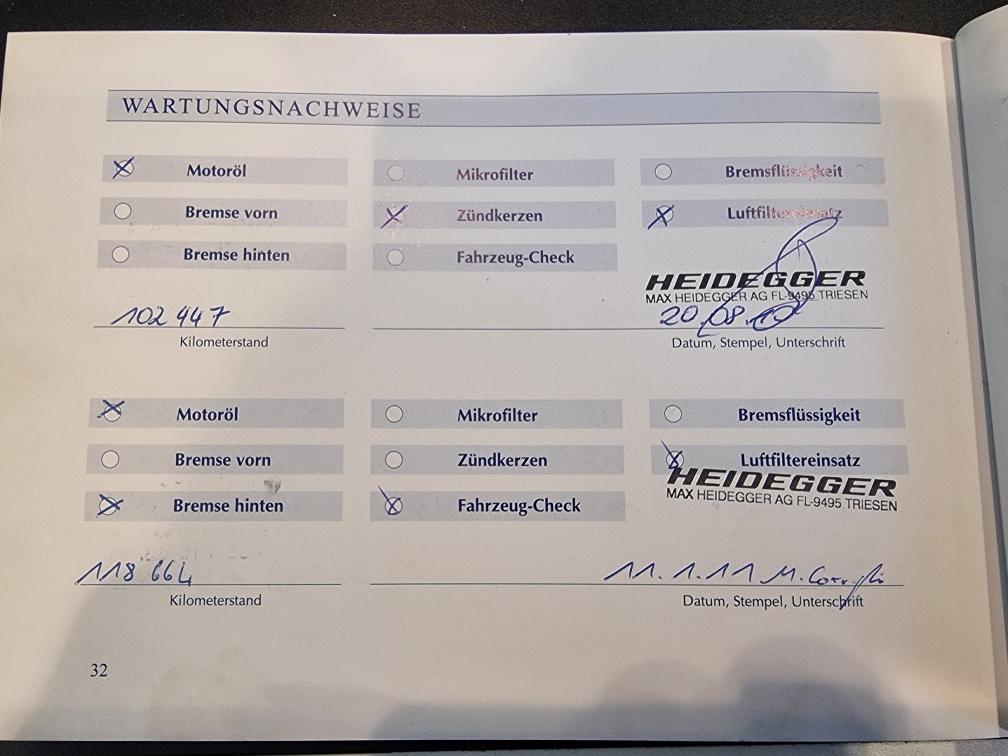 WARTUNGSNACHWEISE
Motoröl Mikrofilter Bremsflüssigkeit
Bremse vorn Zündkerzen Luftfiltereinsatz
Bremse hinten Fahrzeug-Check
HEIDEGGER
MAX HEIDEGGER AG FL-9495 TRIESEN
102 447 20.08.
Kilometerstand Datum, Stempel, Unterschrift
Motoröl Mikrofilter Bremsflüssigkeit
Bremse vorn Zündkerzen Luftfiltereinsatz
HEIDEGGER
Bremse hinten Fahrzeug-Check MAX HEIDEGGER AG FL-9495 TRIESEN
118 664 11.1.11 M.
Kilometerstand Datum, Stempel, Unterschrift
32